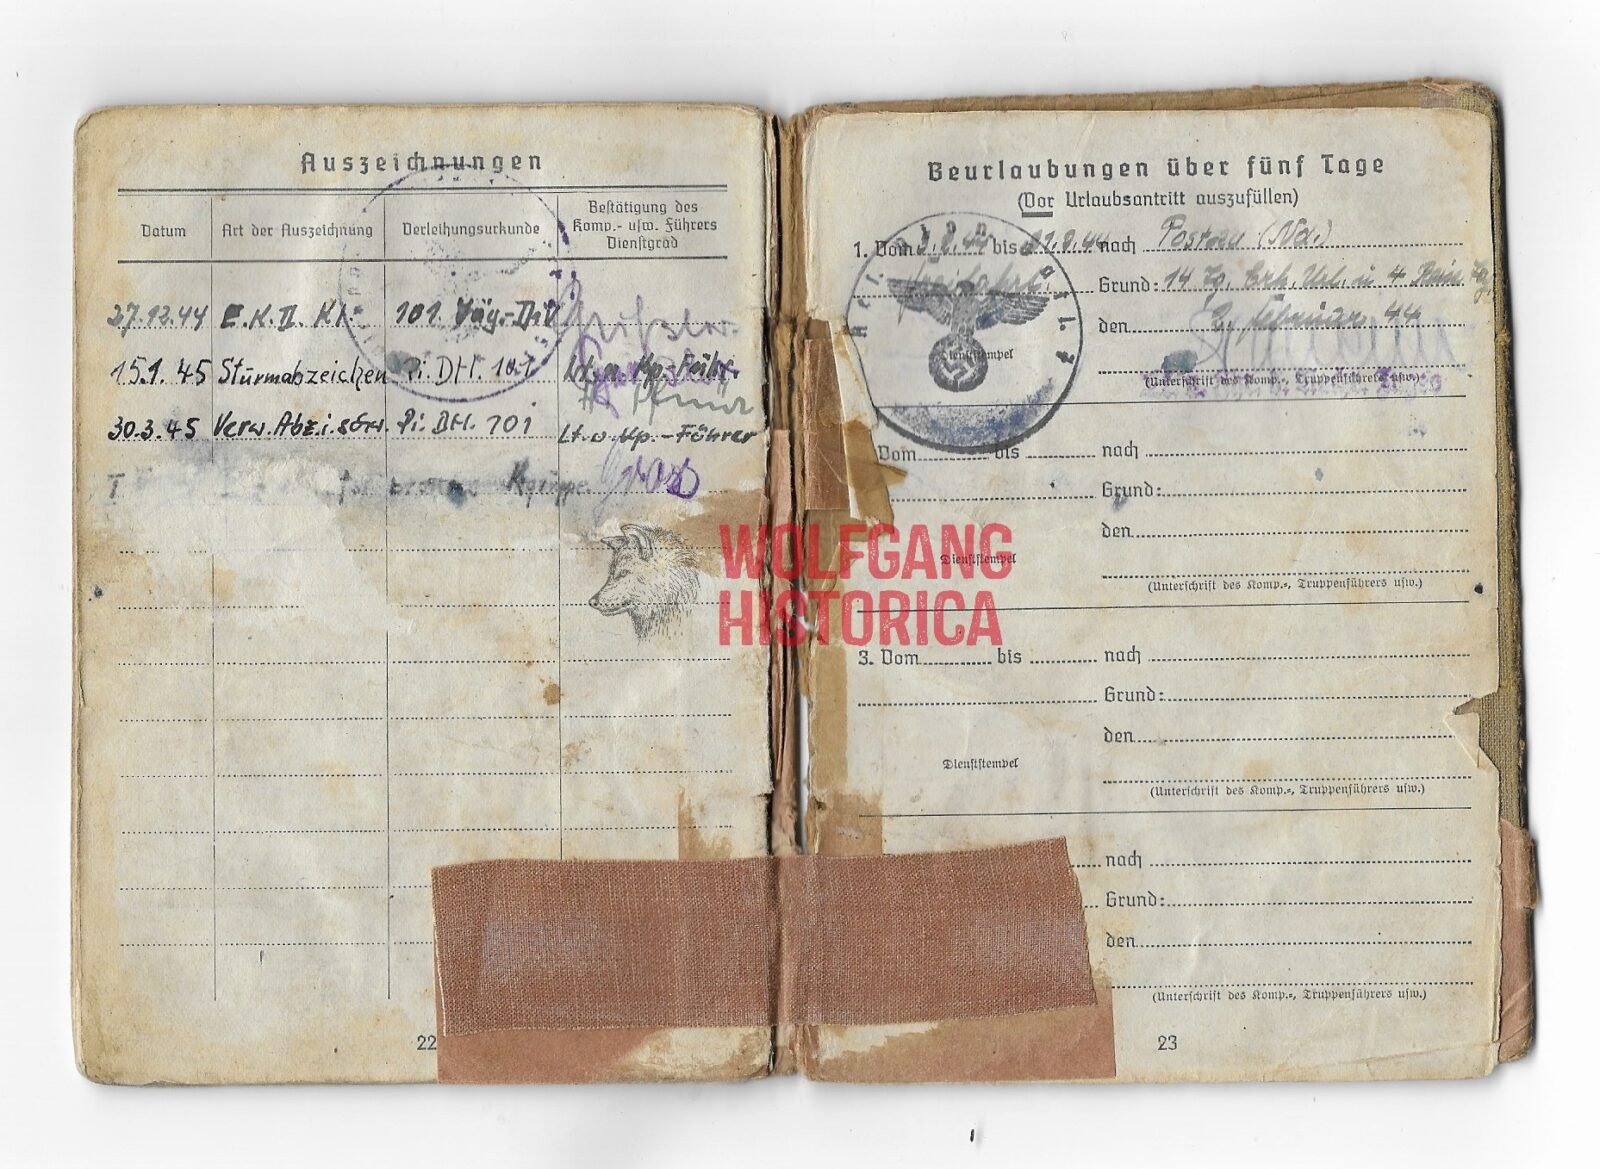 Auszeichnungen
Datum
Art der Auszeichnung
Verleihungsurkunde
Bestätigung des
Komp.- usw. Führers
Dienstgrad
27.12.44 E.K.II. Kl. 101. Jäg.-Div.
15.1.45 Sturmabzeichen Pi. Btl. 101 Lt. u. Kp. Führ.
30.3.45 Verw. Abz. i. schw. Pi. Btl. 101 Lt. u. Kp.-Führer
WOLFGANG
HISTORICA
22
Beurlaubungen über fünf Tage
(Vor Urlaubsantritt auszufüllen)
1. Vom bis nach
Grund: 14 Tg. Erh. Url. u. 4
den 2. Februar 44
Dienststempel
(Unterschrift des Komp.-, Truppenführers usw.)
Vom bis nach
Grund:
den
Dienststempel
(Unterschrift des Komp.-, Truppenführers usw.)
3. Vom bis nach
Grund:
den
Dienststempel
(Unterschrift des Komp.-, Truppenführers usw.)
nach
Grund:
den
(Unterschrift des Komp.-, Truppenführers usw.)
23